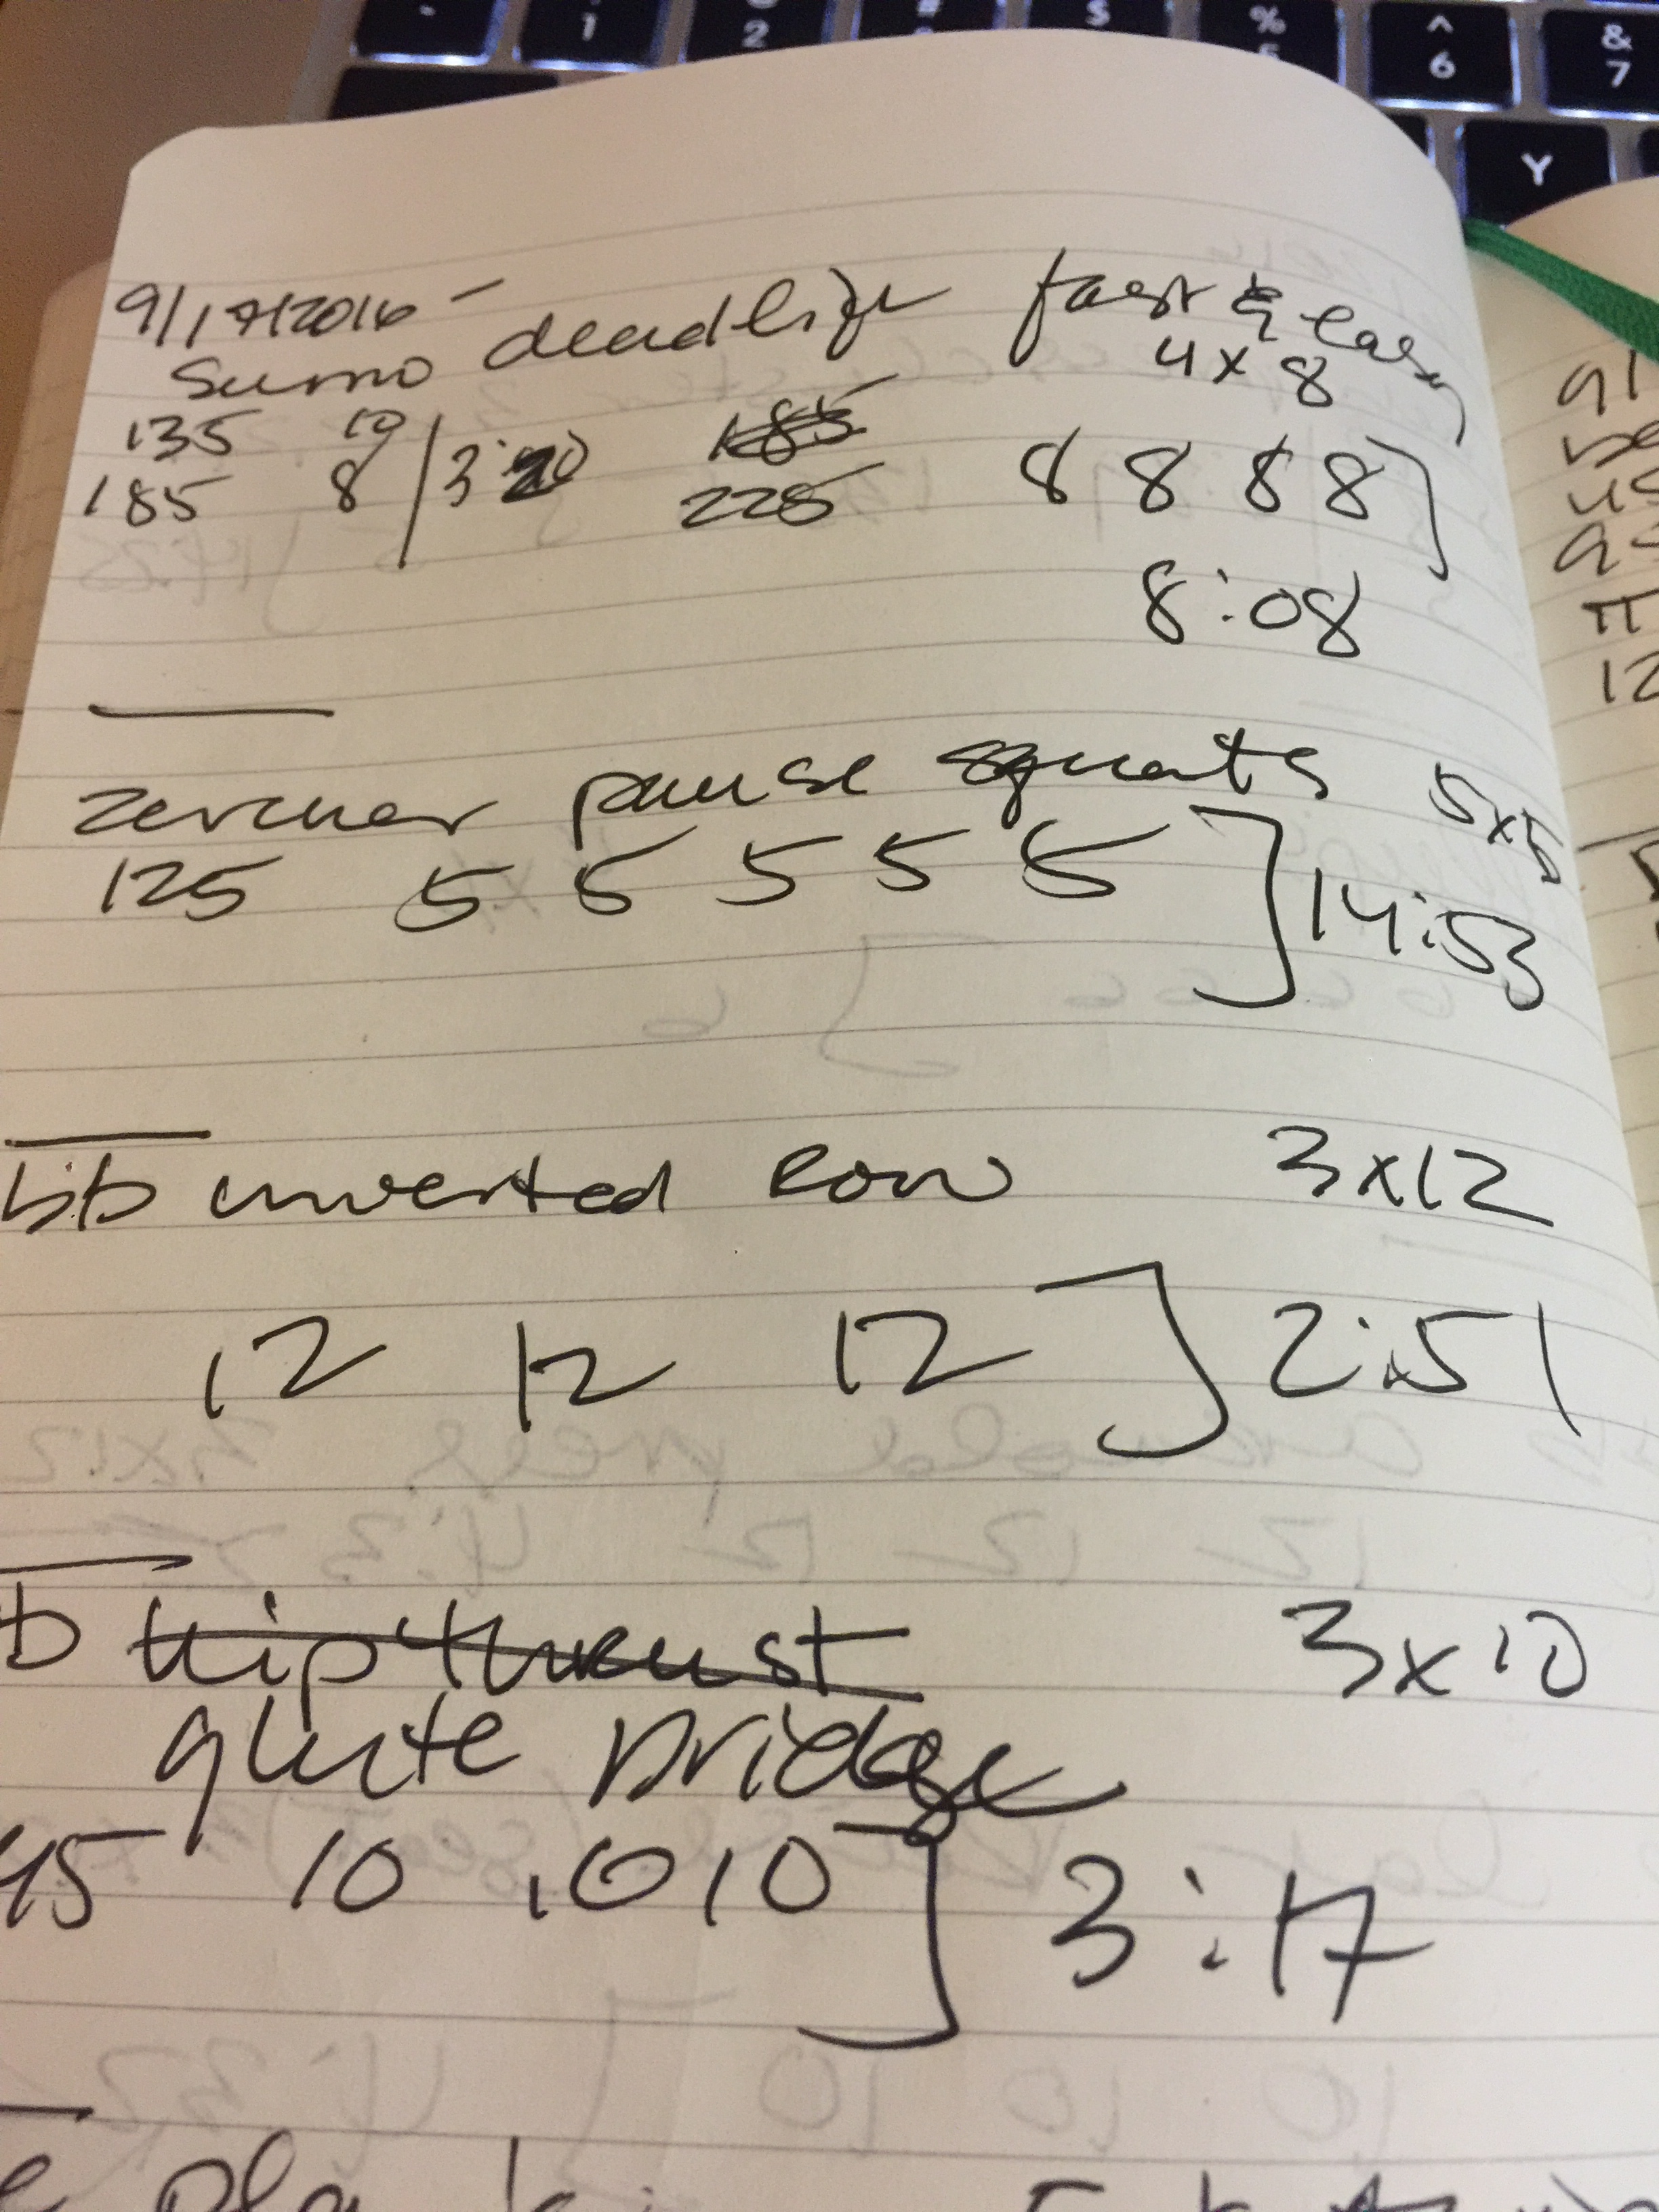 1 2 $ % ^ 6 & 7
Y
9/17/2016 -
Sumo deadlift fast & easy
4 x 8
135 10
185 8 / 3:20 185 225 8 8 8 8 ]
8:08
zercher pause squats 5x5
125 5 5 5 5 5 ] 14:53
bb inverted row 3x12
12 12 12 ] 2:51
b hip thrust 3x10
glute bridge
45 10 10 10 ] 3:17